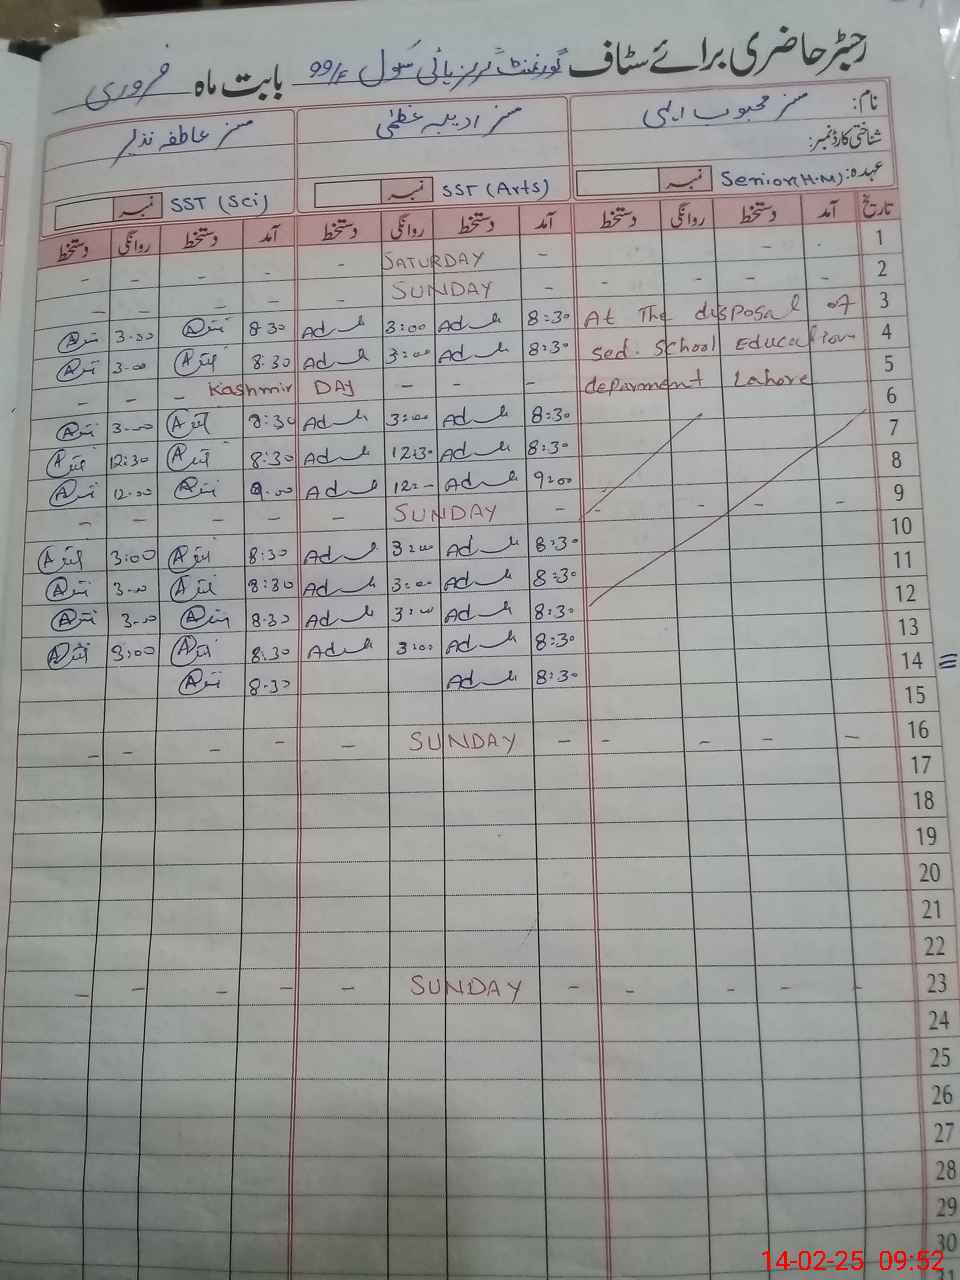 رجسٹر حاضری برائے سٹاف گورنمنٹ گرلز ہائی سکول 99/F بابت ماہ فروری
نام: مسز محبوب الہی مسز ادیبہ عظمیٰ مسز عاطفہ نذیر
شناختی کارڈ نمبر:
عہدہ: Senior (H.M) نمبر SST (Arts) نمبر SST (Sci) نمبر
تاریخ آمد دستخط روانگی دستخط آمد دستخط روانگی دستخط آمد دستخط روانگی دستخط
1 - - SATURDAY - - - - -
2 - - - - - SUNDAY - - - - -
3 At The disposal of 8:30 3:00 8 30 3.00
4 Sed. School Education 8:30 3:00 8.30 3.00
5 deparment Lahore - - - Kashmir DAY - - -
6 8:30 3:00 8:30 3.00
7 8:30 12:30 8:30 12:30
8 9:00 12:- 9.00 12.00
9 - - - - SUNDAY - - - - -
10 8:30 3:00 8:30 3:00
11 8:30 3:00 8:30 3.00
12 8:30 3:00 8.30 3.00
13 8:30 3:00 8.30 3:00
14 8:30 8.30
15
16 - - - - - SUNDAY - - - - -
17
18
19
20
21
22
23 - - - - - SUNDAY - - - - -
24
25
26
27
28
29
30
31
14-02-25 09:52